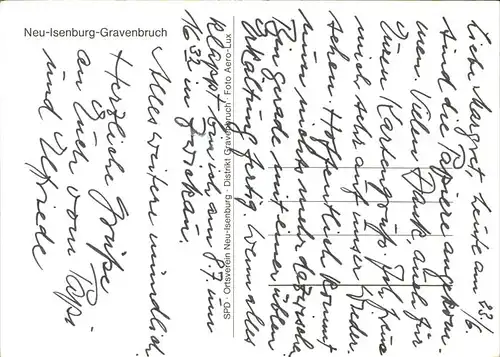 Neu-Isenburg-Gravenbruch
SPD · Ortsverein Neu-Isenburg · Distrikt Gravenbruch · Foto Aero-Lux
22/6
Liebe Margret, heute am
sind die Papiere angekom-
men. Vielen Dank, auch für
Deinen Kartengruß. Ich freue
mich sehr auf unser Wieder-
sehen. Hoffentlich kommt
nun nichts mehr dazwischen.
Bin gerade mit einer üblen
Erkältung fertig. Wenn alles
klappt bin ich am 8.7. um
1632 in Zwickau.
Alles weitere mündlich.
Herzliche Grüße
an Euch vom Papi
und Elfriede